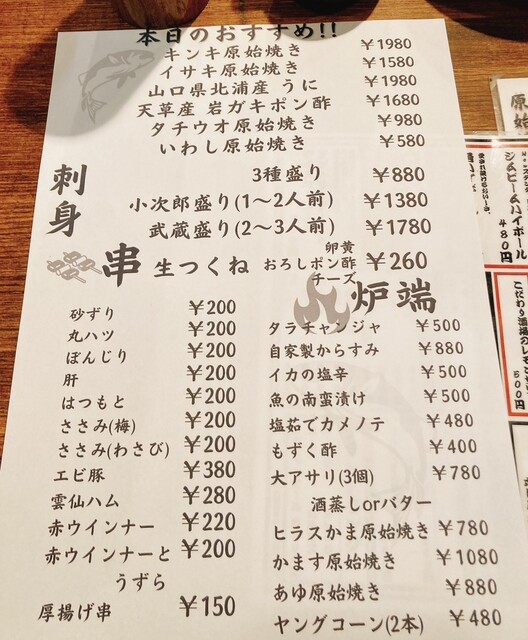 本日のおすすめ!!
キンキ原始焼き ¥1980
イサキ原始焼き ¥1580
山口県北浦産 うに ¥1980
天草産 岩ガキポン酢 ¥1680
タチウオ原始焼き ¥980
いわし原始焼き ¥580
刺身
3種盛り ¥880
小次郎盛り(1〜2人前) ¥1380
武蔵盛り(2〜3人前) ¥1780
串
生つくね 卵黄 おろしポン酢 チーズ ¥260
砂ずり ¥200
丸ハツ ¥200
ぼんじり ¥200
肝 ¥200
はつもと ¥200
ささみ(梅) ¥200
ささみ(わさび) ¥200
エビ豚 ¥380
雲仙ハム ¥280
赤ウインナー ¥220
赤ウインナーと ¥200
うずら
厚揚げ串 ¥150
炉端
タラチャンジャ ¥500
自家製からすみ ¥880
イカの塩辛 ¥500
魚の南蛮漬け ¥500
塩茹でカメノテ ¥480
もずく酢 ¥400
大アサリ(3個) ¥780
酒蒸しorバター
ヒラスかま原始焼き ¥780
かます原始焼き ¥1080
あゆ原始焼き ¥880
ヤングコーン(2本) ¥480
原始
480円
こだわり酒場のレモン
500円